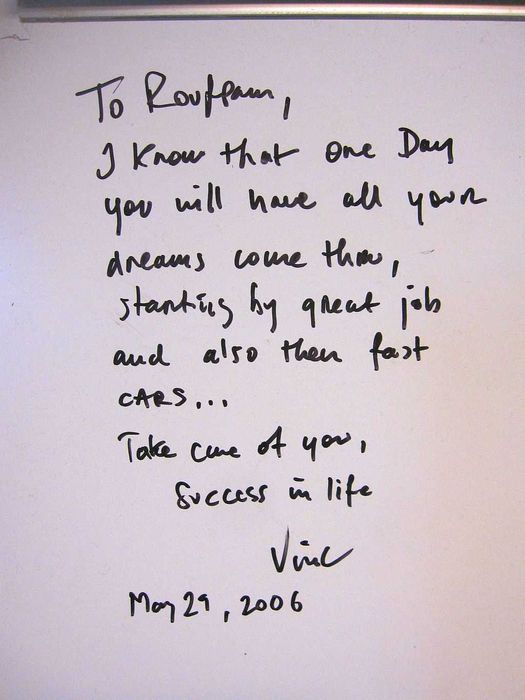 To
I know that one Day
you will have all your
dreams come thru,
starting by great job
and also then fast
CARS...
Take care of you,
Success in life
May 29, 2006